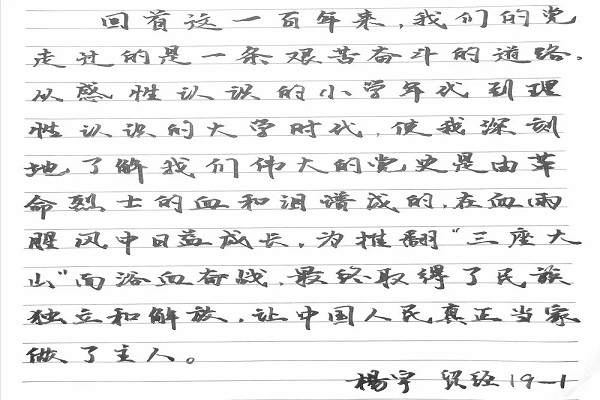 回首这一百年来，我们的党
走过的是一条艰苦奋斗的道路。
从感性认识的小学年代到理
性认识的大学时代，使我深刻
地了解我们伟大的党史是由革
命烈士的血和泪谱成的，在血雨
腥风中日益成长，为推翻“三座大
山”而浴血奋战，最终取得了民族
独立和解放，让中国人民真正当家
做了主人。
杨宇 贸经19-1